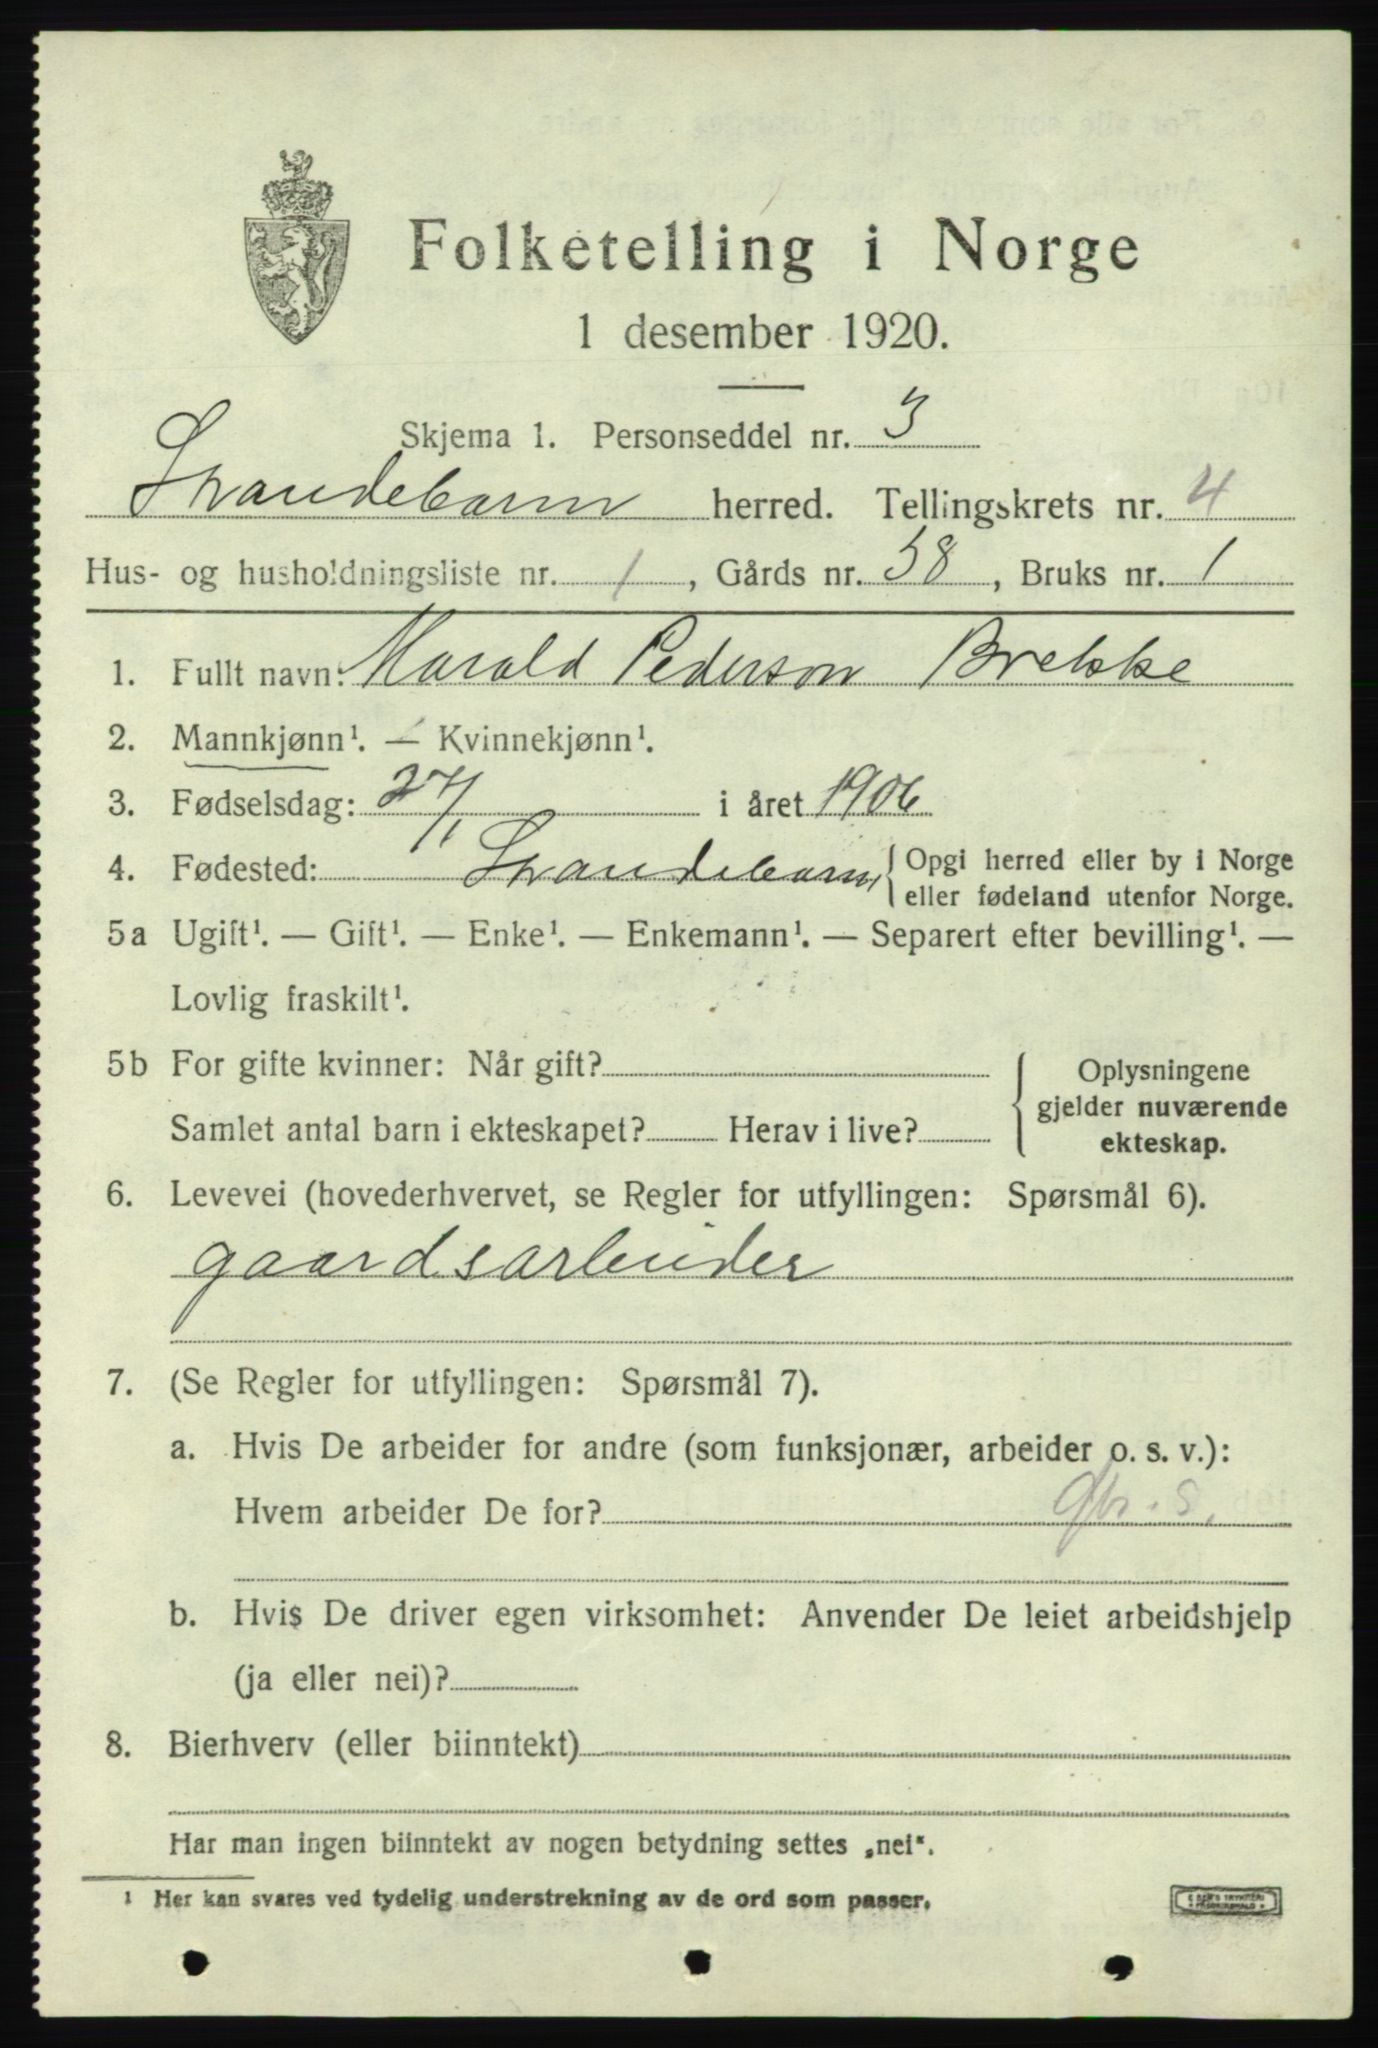 Folketelling i Norge
1 desember 1920.
Skjema 1. Personseddel nr. 3
Strandebarm herred. Tellingskrets nr. 4
Hus- og husholdningsliste nr. 1, Gårds nr. 58, Bruks nr. 1
1. Fullt navn: Harald Pederson Brekke
2. Mannkjønn¹. — Kvinnekjønn¹.
3. Fødselsdag: 27/1 i året 1906
4. Fødested: Strandebarm, { Opgi herred eller by i Norge
eller fødeland utenfor Norge.
5a Ugift¹. — Gift¹. — Enke¹. — Enkemann¹. — Separert efter bevilling¹. —
Lovlig fraskilt¹.
5b For gifte kvinner: Når gift?
Samlet antal barn i ekteskapet? Herav i live?
Oplysningene
gjelder nuværende
ekteskap.
6. Levevei (hovederhvervet, se Regler for utfyllingen: Spørsmål 6).
gaardsarbeider
7. (Se Regler for utfyllingen: Spørsmål 7).
a. Hvis De arbeider for andre (som funksjonær, arbeider o. s. v.):
Hvem arbeider De for? Gbr. s.
b. Hvis De driver egen virksomhet: Anvender De leiet arbeidshjelp
(ja eller nei)?
8. Bierhverv (eller biinntekt)
Har man ingen biinntekt av nogen betydning settes „nei“.
1 Her kan svares ved tydelig understrekning av de ord som passer.